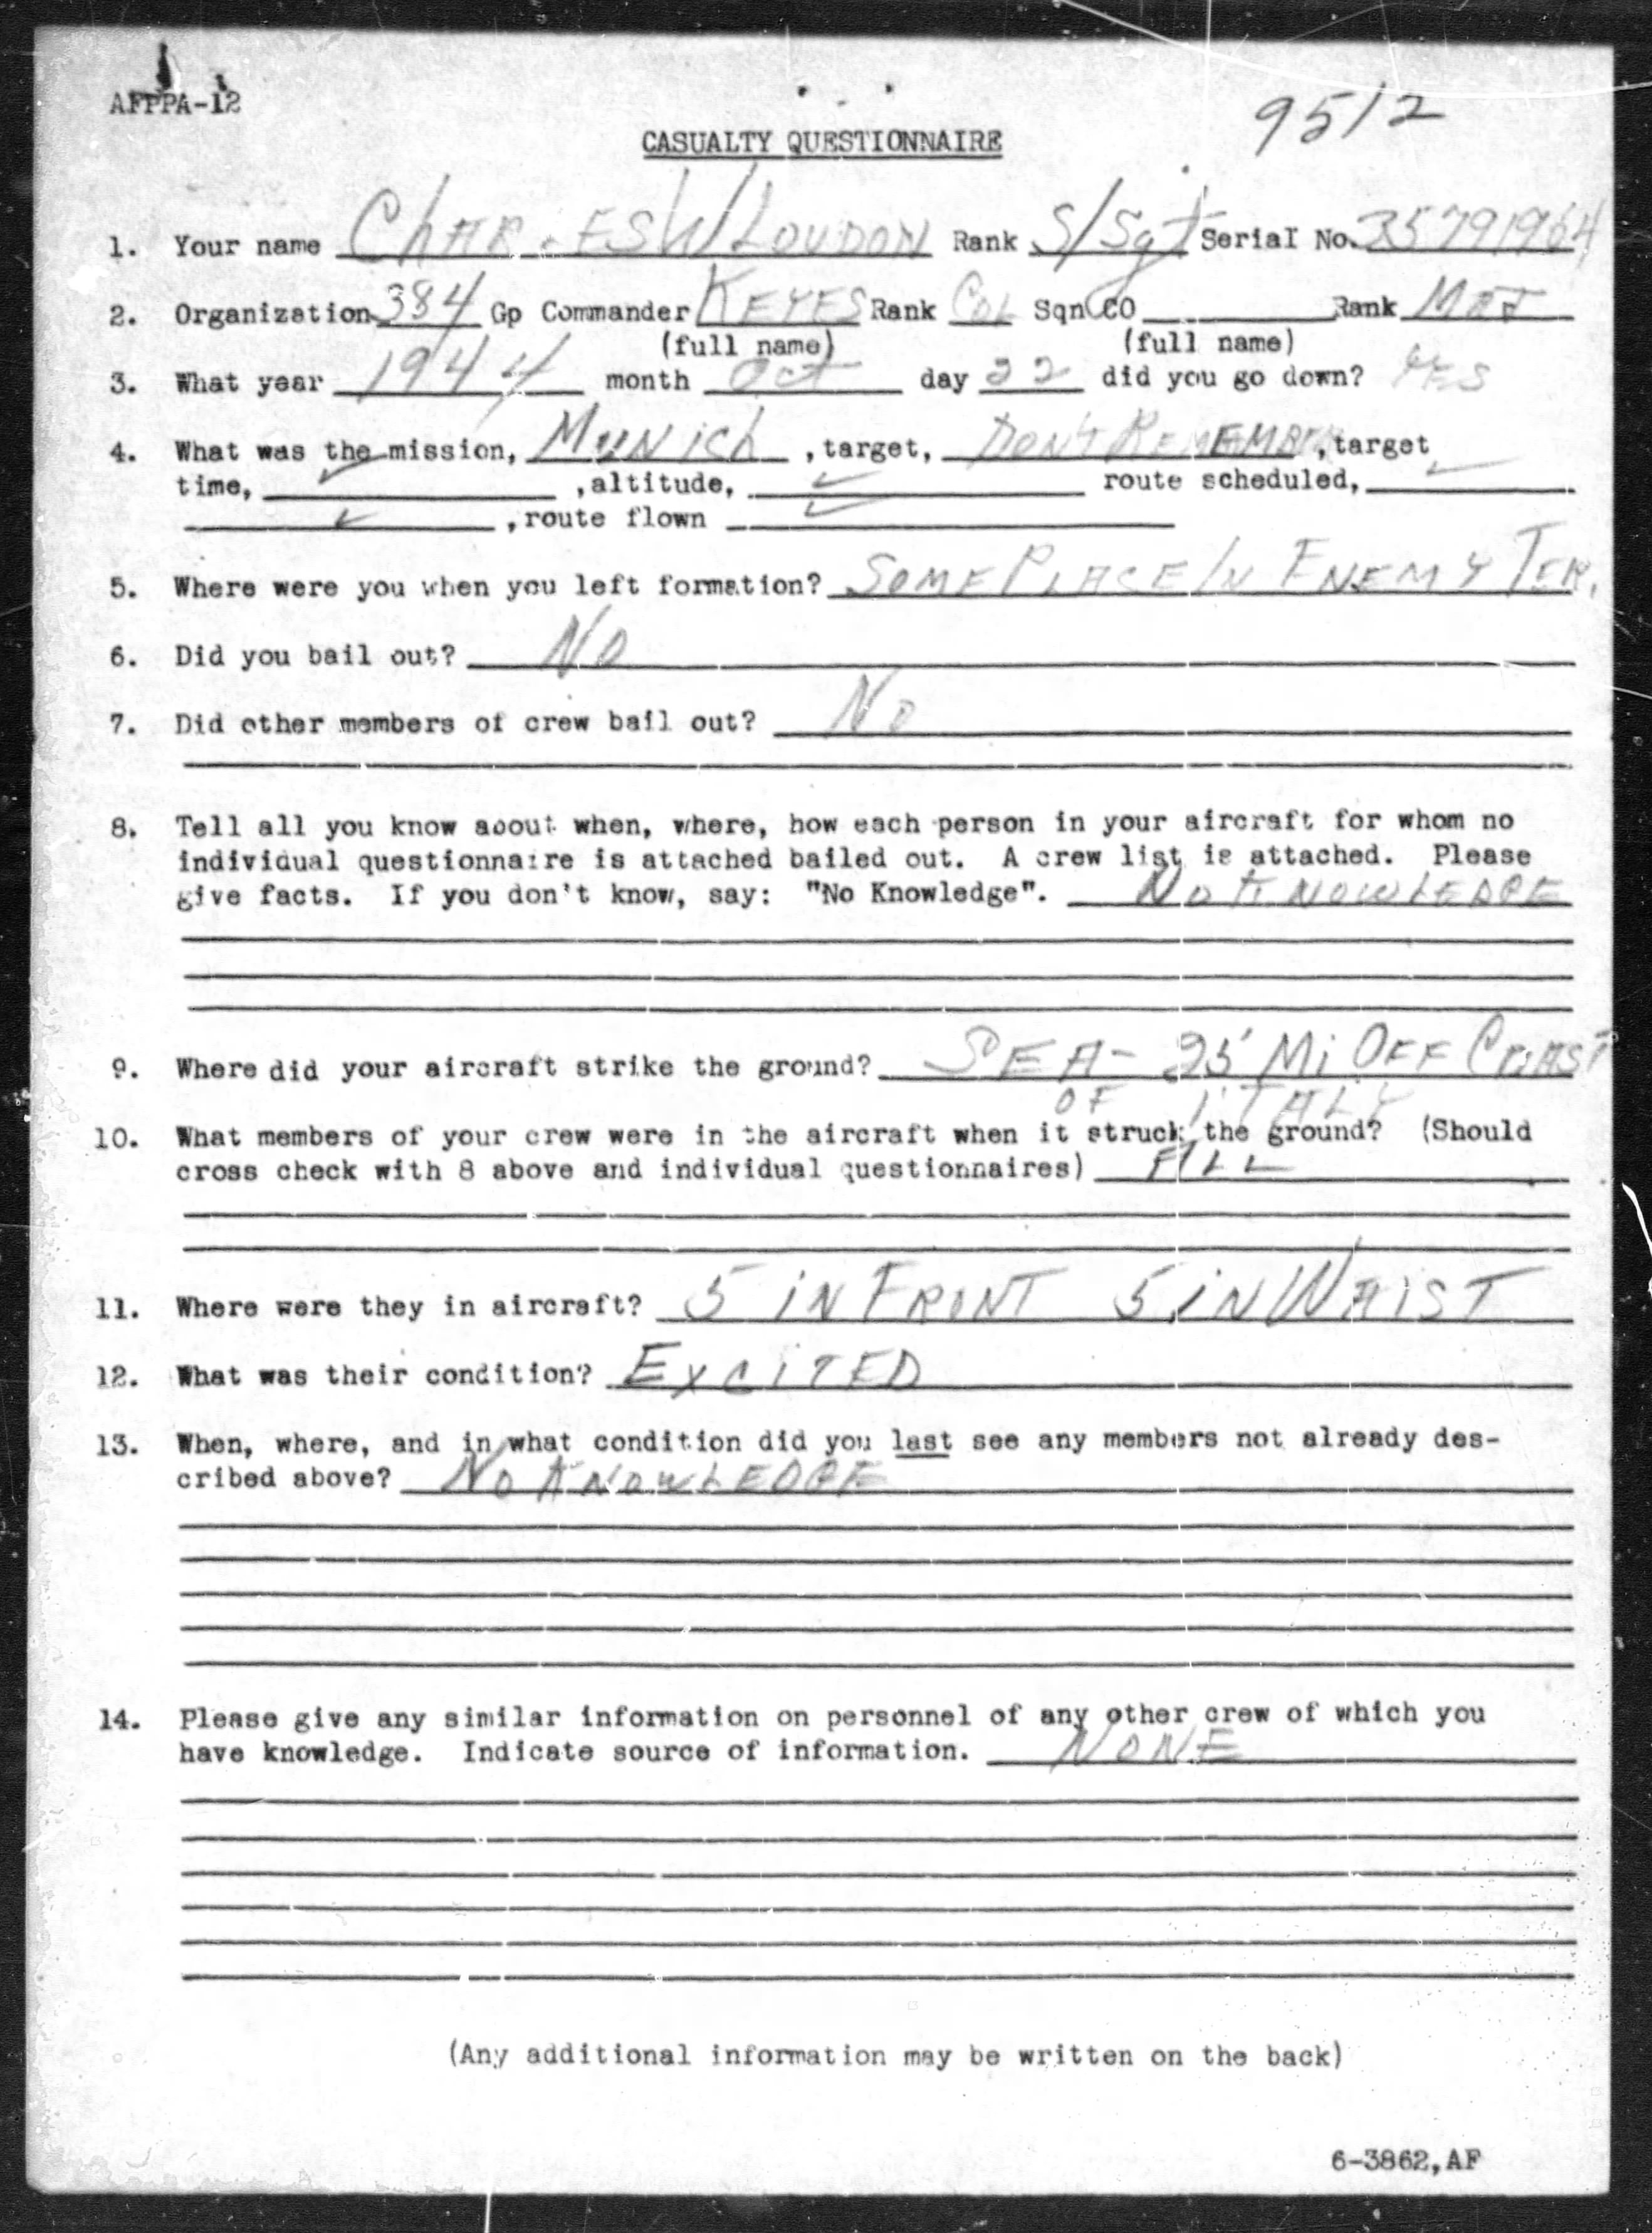 AFPPA-12
9512
CASUALTY QUESTIONNAIRE
1. Your name CHARLES W LOUDON Rank S/Sgt Serial No. 35791964
2. Organization 384 Gp Commander KEYES Rank COL Sqn CO Rank MAJ
(full name) (full name)
3. What year 1944 month Oct day 22 did you go down? YES
4. What was the mission, MUNICH , target, DON'T REMEMBER, target
time, ✓ , altitude, ✓ route scheduled, ✓
✓ , route flown ✓
5. Where were you when you left formation? SOME PLACE IN ENEMY TER.
6. Did you bail out? NO
7. Did other members of crew bail out? NO
8. Tell all you know about when, where, how each person in your aircraft for whom no
individual questionnaire is attached bailed out. A crew list is attached. Please
give facts. If you don't know, say: "No Knowledge". NO KNOWLEDGE
9. Where did your aircraft strike the ground? SEA- 25 Mi OFF COAST
OF ITALY
10. What members of your crew were in the aircraft when it struck the ground? (Should
cross check with 8 above and individual questionnaires) ALL
11. Where were they in aircraft? 5 IN FRONT 5 IN WAIST
12. What was their condition? EXCITED
13. When, where, and in what condition did you last see any members not already des-
cribed above? NO KNOWLEDGE
14. Please give any similar information on personnel of any other crew of which you
have knowledge. Indicate source of information. NONE
(Any additional information may be written on the back)
6-3862,AF